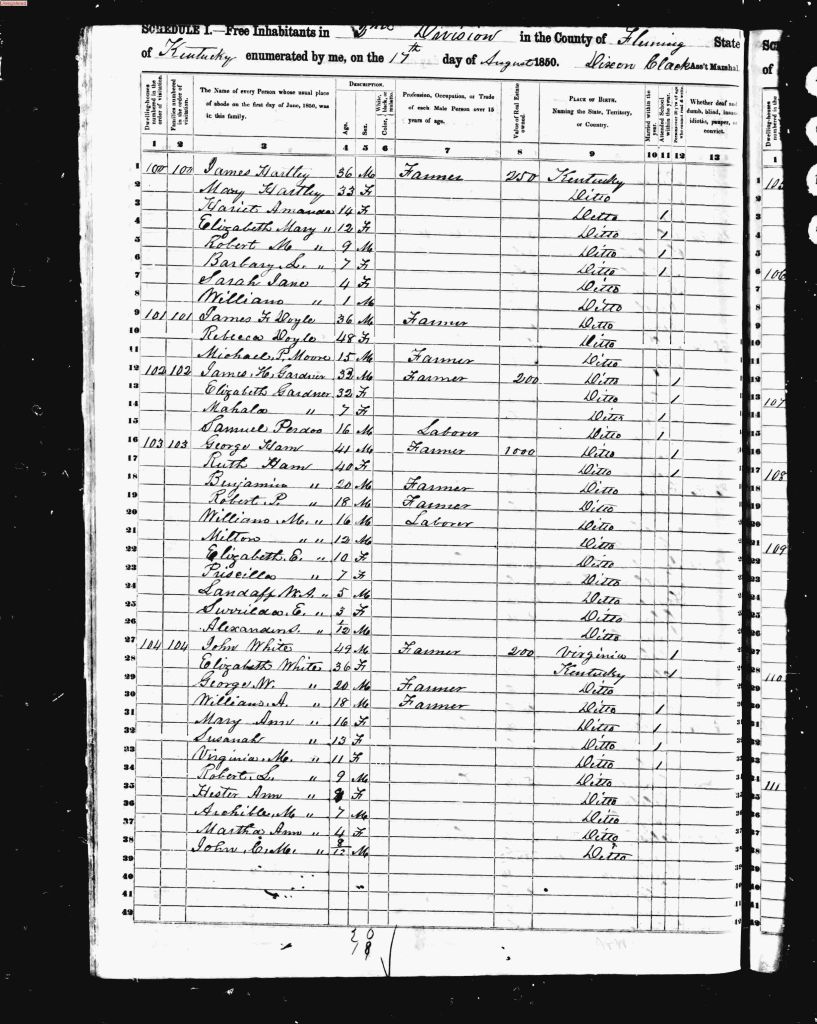 SCHEDULE I.—Free Inhabitants in 2nd Division in the County of Fleming State
of Kentucky enumerated by me, on the 17th day of August 1850. Dixon Clack Ass't Marshal.
Dwelling-houses numbered in the order of visitation.
Families numbered in the order of visitation.
The Name of every Person whose usual place of abode on the first day of June, 1850, was in this family.
DESCRIPTION.
Age.
Sex.
Color, White, black, or mulatto.
Profession, Occupation, or Trade of each Male Person over 15 years of age.
Value of Real Estate owned.
PLACE OF BIRTH. Naming the State, Territory, or Country.
Married within the year.
Attended School within the year.
Whether deaf and dumb, blind, insane, idiotic, pauper, or convict.
1 2 3 4 5 6 7 8 9 10 11 12 13
1 100 100 James Hartley 36 M Farmer 250 Kentucky
2 Mary Hartley 33 F Ditto
3 Hariet Amanda 14 F Ditto 1
4 Elizabeth Mary " 12 F Ditto 1
5 Robert M " 9 M Ditto 1
6 Barbary L. " 7 F Ditto 1
7 Sarah Jane 4 F Ditto
8 William " 1 M Ditto
9 101 101 James F Doyle 36 M Farmer Ditto
10 Rebecca Doyle 48 F Ditto
11 Michael P. Moore 15 M Farmer Ditto
12 102 102 James H. Gardner 33 M Farmer 200 Ditto 1
13 Elizabeth Gardner 32 F Ditto 1
14 Mahala " 7 F Ditto 1
15 Samuel Perdoo 16 M Laborer Ditto 1
16 103 103 George Ham 41 M Farmer 1000 Ditto 1
17 Ruth Ham 40 F Ditto 1
18 Benjamin " 20 M Farmer Ditto
19 Robert P. " 18 M Farmer Ditto
20 William M. " 16 M Laborer Ditto
21 Milton " " 12 M Ditto
22 Elizabeth E. " 10 F Ditto
23 Priscilla " 7 F Ditto
24 Landaff W. A. " 5 M Ditto
25 Surrilda E. " 3 F Ditto
26 Alexander S. " 1/12 M Ditto
27 104 104 John White 49 M Farmer 200 Virginia 1
28 Elizabeth White 36 F Kentucky 1
29 George W. " 20 M Farmer Ditto
30 William A. " 18 M Farmer Ditto 1
31 Mary Ann " 16 F Ditto 1
32 Susanah " 13 F Ditto 1
33 Virginia M. " 11 F Ditto 1
34 Robert L. " 9 M Ditto
35 Hester Ann " 8 F Ditto
36 Archible M " 7 M Ditto
37 Martha Ann " 4 F Ditto
38 John C. M. " 8/12 M Ditto
39
40
41
42
105
106
107
108
109
110
111